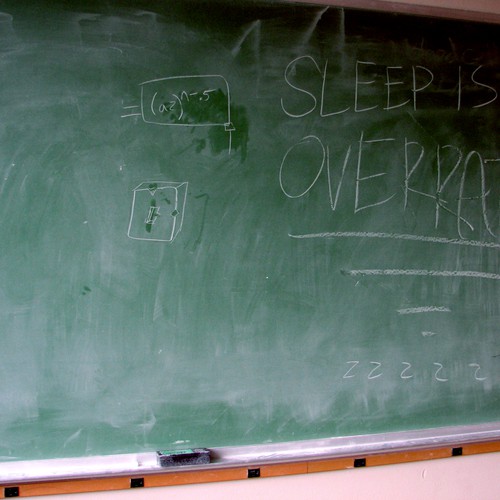 = (az)^n-.5
SLEEP IS
OVERRA
z z z z z